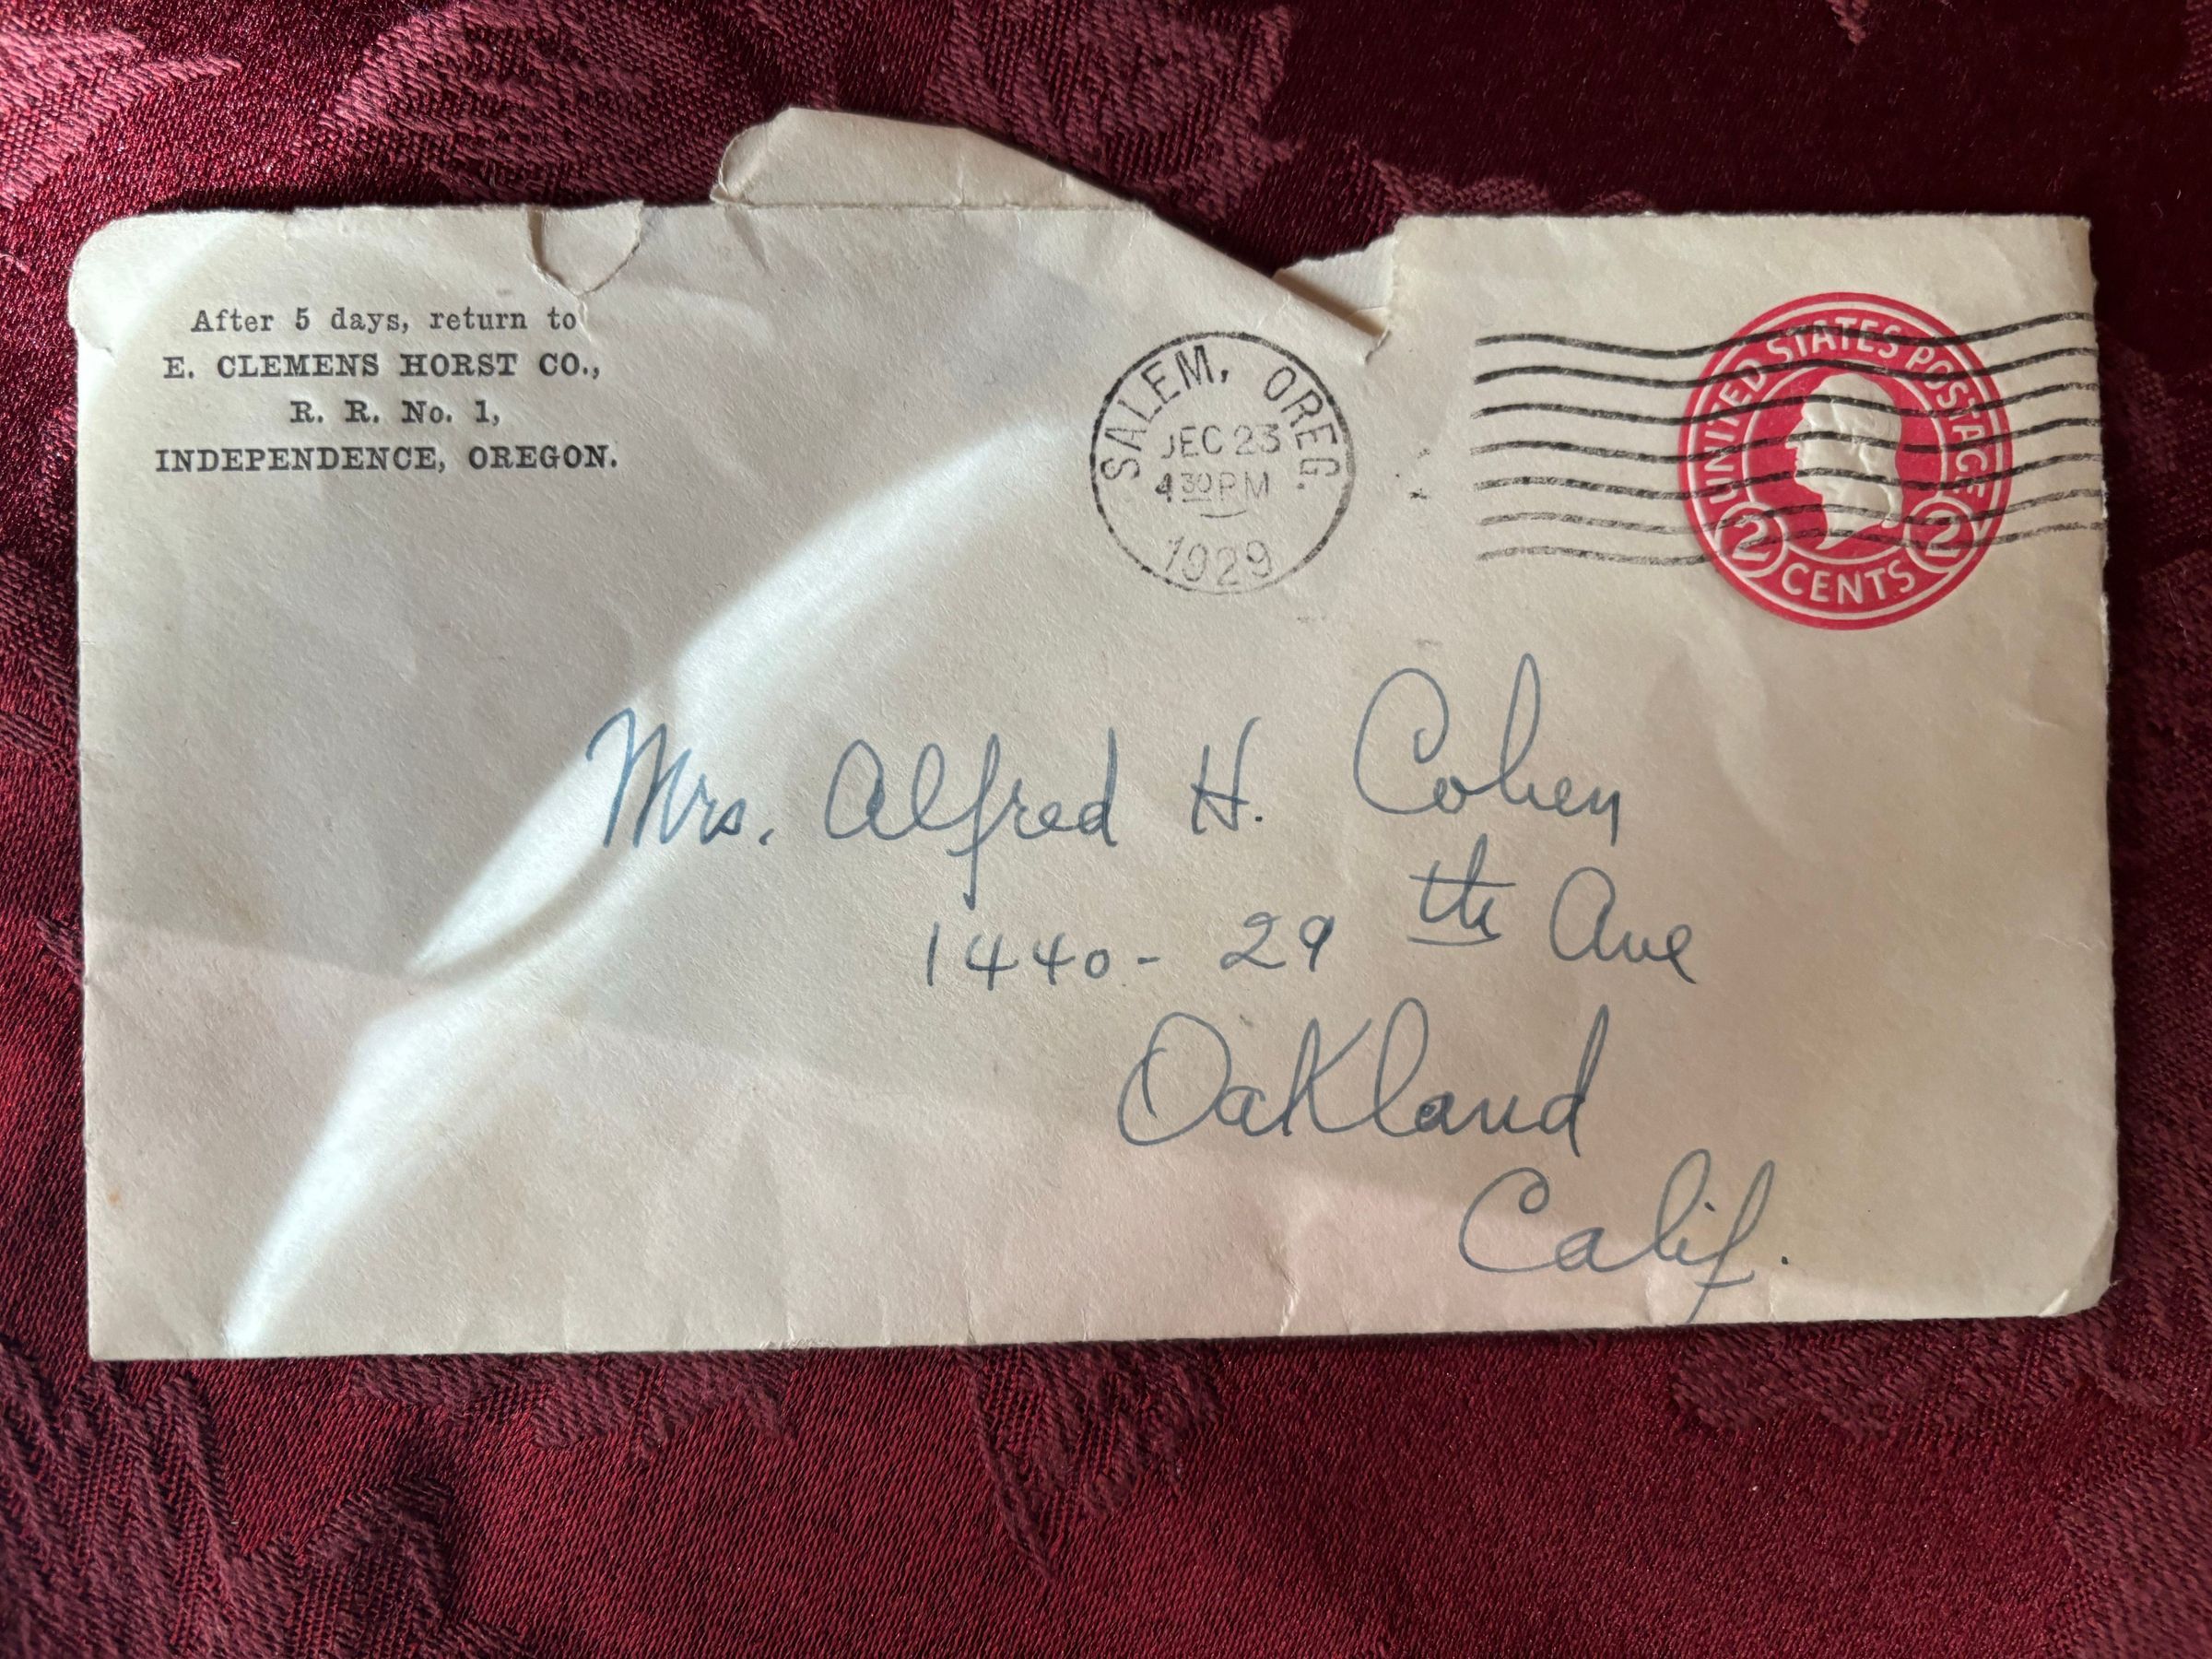 After 5 days, return to
E. CLEMENS HORST CO.,
R. R. No. 1,
INDEPENDENCE, OREGON.
SALEM, OREG.
DEC 23
4 30 PM
1929
UNITED STATES POSTAGE
2 CENTS 2
Mrs. Alfred H. Cohen
1440 - 29 th Ave
Oakland
Calif.